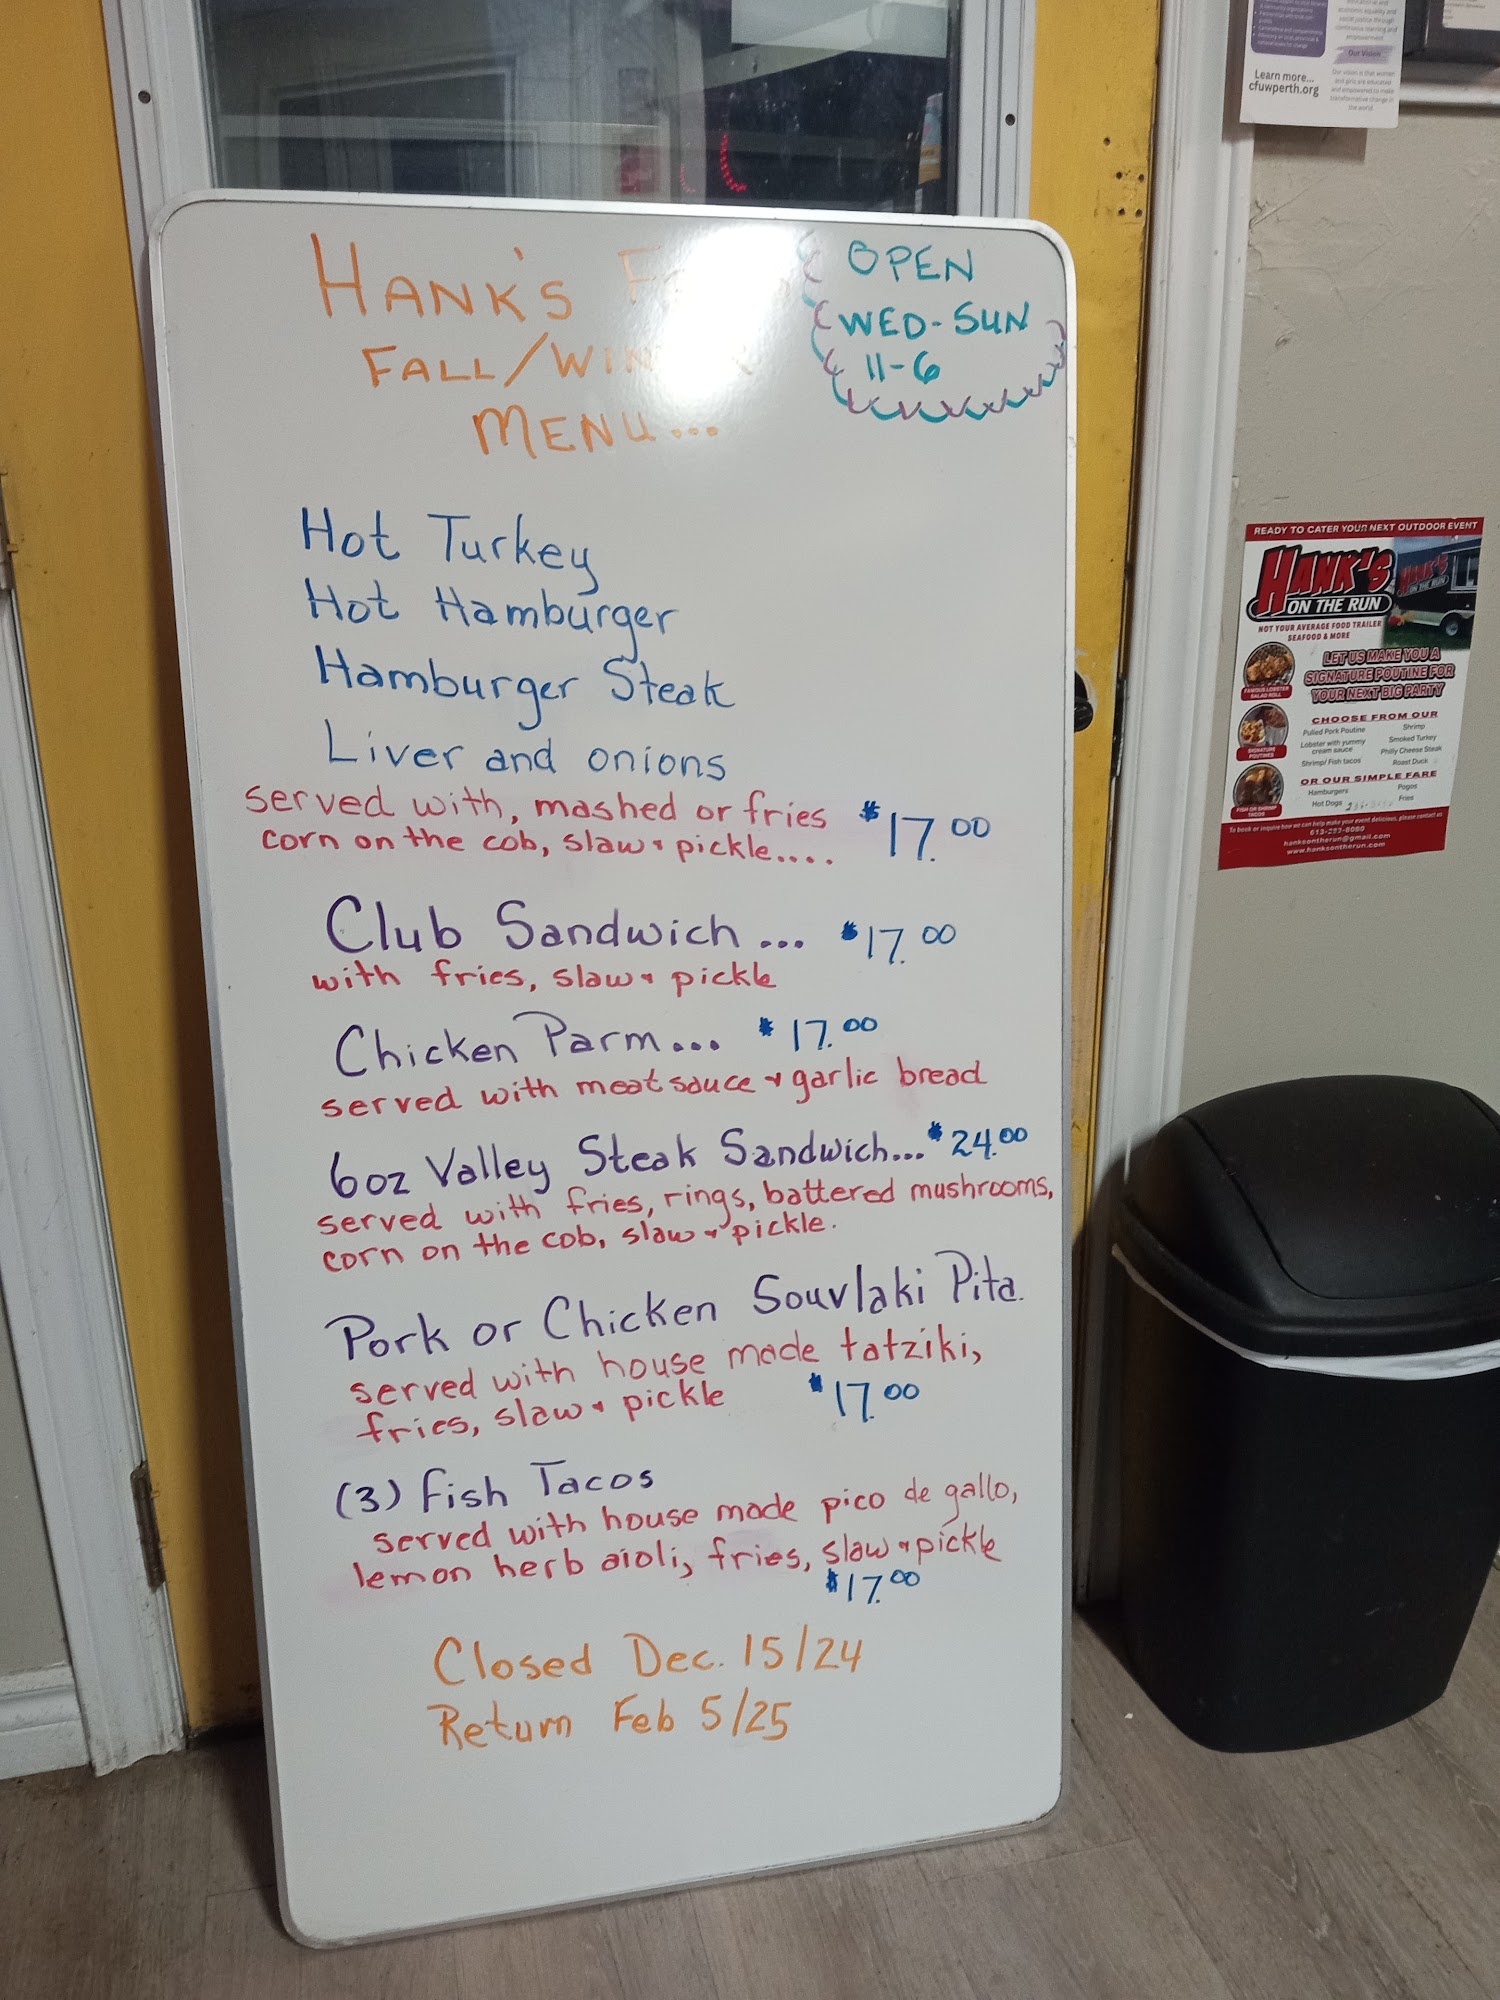 HANK'S
FALL/
MENU...
OPEN
WED-SUN
11-6
Hot Turkey
Hot Hamburger
Hamburger Steak
Liver and onions
served with, mashed or fries
corn on the cob, slaw & pickle.... $17.00
Club Sandwich... $17.00
with fries, slaw & pickle
Chicken Parm... $17.00
served with meat sauce & garlic bread
6oz Valley Steak Sandwich... $24.00
served with fries, rings, battered mushrooms,
corn on the cob, slaw & pickle.
Pork or Chicken Souvlaki Pita.
served with house made tatziki,
fries, slaw & pickle $17.00
(3) Fish Tacos
served with house made pico de gallo,
lemon herb aioli, fries, slaw & pickle
$17.00
Closed Dec. 15/24
Return Feb 5/25
Learn more...
cfuwperth.org
Our Vision
READY TO CATER YOUR NEXT OUTDOOR EVENT
HANK'S
ON THE RUN
NOT YOUR AVERAGE FOOD TRAILER
SEAFOOD & MORE
LET US MAKE YOU A
SIGNATURE POUTINE FOR
YOUR NEXT BIG PARTY
CHOOSE FROM OUR
Pulled Pork Poutine
Lobster with yummy
cream sauce
Shrimp/ Fish tacos
Shrimp
Smoked Turkey
Philly Cheese Steak
Roast Duck
OR OUR SIMPLE FARE
Hamburgers
Hot Dogs
Pogos
Fries
hanksontherun@gmail.com
www.hanksontherun.com